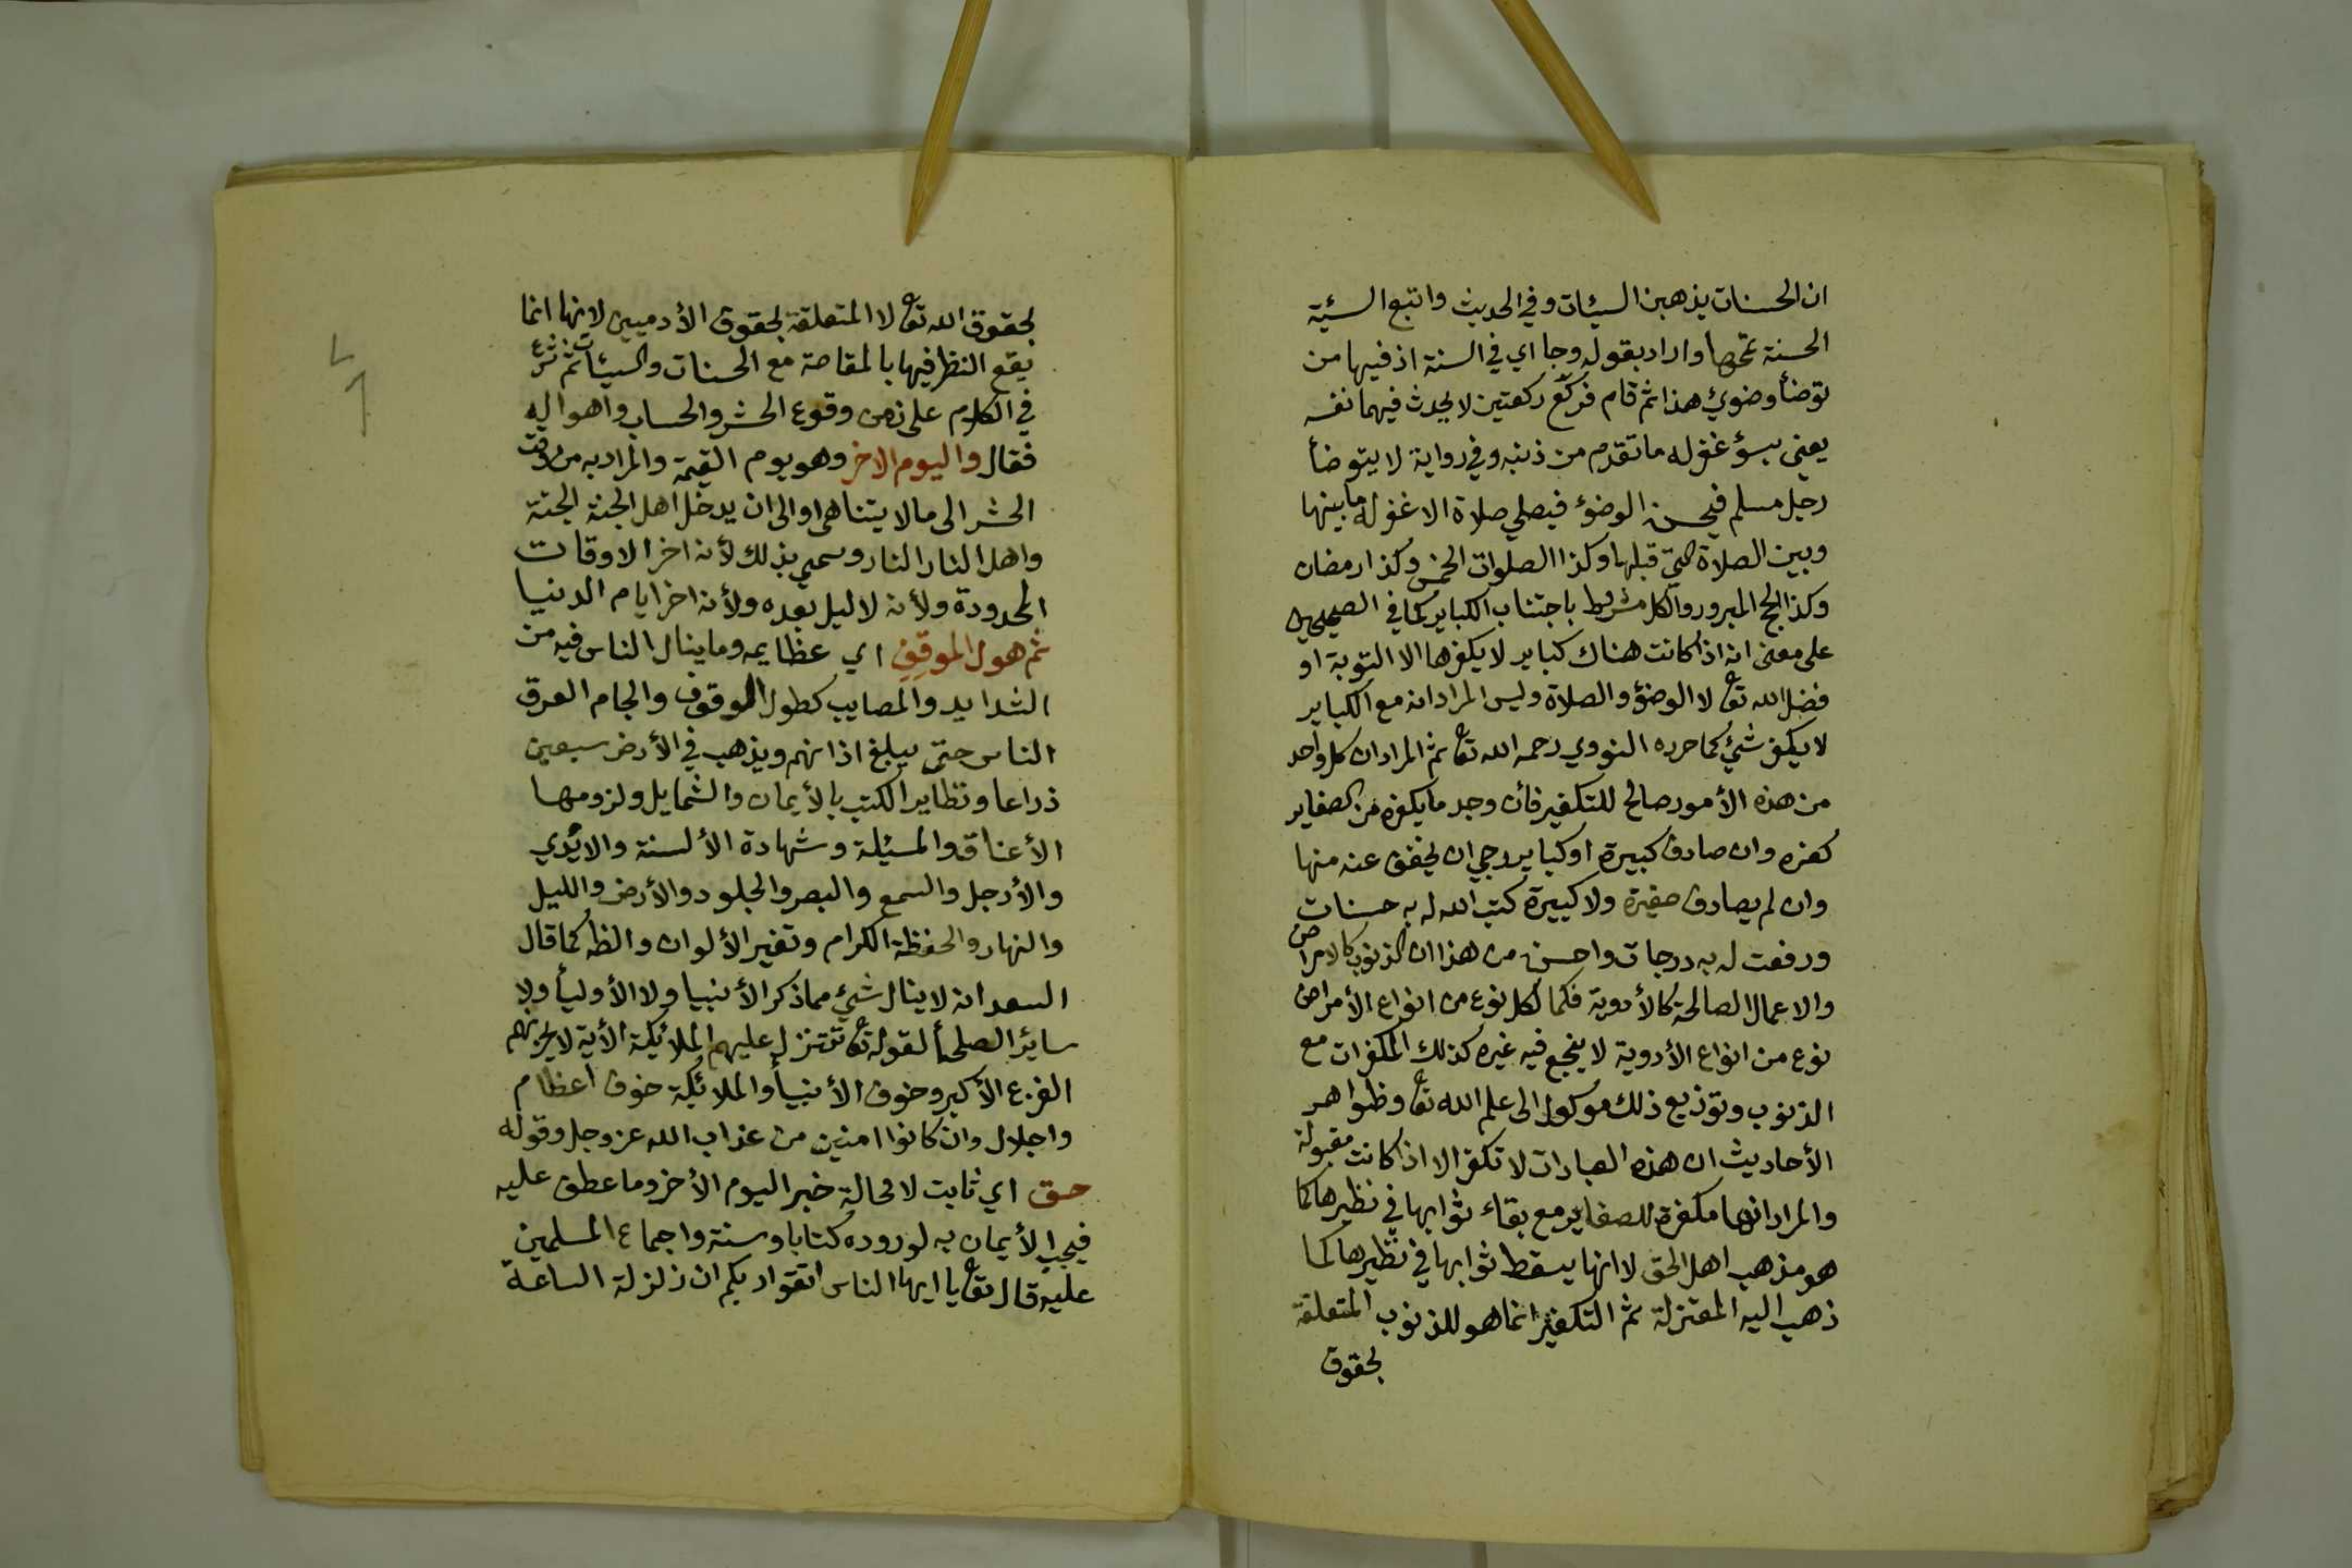 ان الحسنات يذهبن السيئات وفي الحديث واتبع السيئة
الحسنة تمحها واراد بقوله وجا اي في السنة اذ فيها من
توضأ وضوئ هذا ثم قام فركع ركعتين لا يحدث فيهما نفسه
يعني بسوء غفر له ما تقدم من ذنبه وفي رواية لا يتوضأ
رجل مسلم فيحسن الوضؤ فيصلي صلاة الا غفر له ما بينها
وبين الصلاة التي قبلها وكذا الصلوات الخمس وكذا رمضان
وكذا الحج المبرور والكل مشروط باجتناب الكباير كما في الصحيحين
على معنى انه اذا كانت هناك كباير لا يكفرها الا التوبة او
فضل الله تعا لا الوضؤ والصلاة وليس المراد انه مع الكباير
لا يكفر شئ كما حرره النووي رحمه الله تعا ثم المراد ان كل واحد
من هذه الأمور صالح للتكفير فأن وجد ما يكفره من الصغاير
كفره وان صادف كبيرة او كباير رجي ان يخفف عنه منها
وان لم يصادف صغيرة ولا كبيرة كتب الله له به حسنات
ورفعت له به درجات واحسن من هذا ان الذنوب كالامراض
والاعمال الصالحة كالأدوية فكما لكل نوع من انواع الأمراض
نوع من انواع الأدوية لا ينجع فيه غيره كذلك المكفرات مع
الذنوب وتوزيع ذلك موكول الى علم الله تعا وظواهر
الأحاديث ان هذه العبادات لا تكفر الا اذا كانت مقبولة
والمراد انها مكفرة للصغاير مع بقاء ثوابها في نظيرها كما
هو مذهب اهل الحق لا انها يسقط ثوابها في نظيرها كما
ذهب اليه المعتزلة ثم التكفير انما هو للذنوب المتعلقة
بحقوق
بحقوق الله تعا لا المتعلقة بحقوق الأدميين لانها انما
يقع النظر فيها بالمقاصة مع الحسنات والسيئات ثم شرع
في الكلام على زمن وقوع الحشر والحساب واهواله
فقال واليوم الاخر وهو يوم القيمة والمراد به من وقت
الحشر الى ما لا يتناهى او الى ان يدخل اهل الجنة الجنة
واهل النار النار وسمي بذلك لأنه اخر الاوقات
المحدودة ولأنه لا ليل بعده ولأنه اخر ايام الدنيا
ثم هول الموقف اي عظايمه وما ينال الناس فيه من
الشدايد والمصايب كطول الموقوف والجام العرق
الناس حتى يبلغ اذانهم ويذهب في الأرض سبعين
ذراعا وتطاير الكتب بالأيمان والشمايل ولزومها
الأعناق والمسئلة وشهادة الألسنة والايدي
والأرجل والسمع والبصر والجلود والأرض والليل
والنهار والحفظة الكرام وتغير الألوان والظ كما قال
السعد انه لا ينال شئ مما ذكر الأنبيا ولا الأوليأ ولا
سائر الصلحأ لقوله تعا تتنزل عليهم الملائكة الأية لا يحزنهم
الفزع الأكبر وخوف الأنبيأ والملائكة خوف اعظام
واجلال وان كانوا امنين من عذاب الله عز وجل وقوله
حق اي ثابت لا محالة خبر اليوم الأخر وما عطف عليه
فيجب الأيمان به لوروده كتابا وسنة واجماع المسلمين
عليه قال تعا يا ايها الناس اتقوا ربكم ان زلزلة الساعة